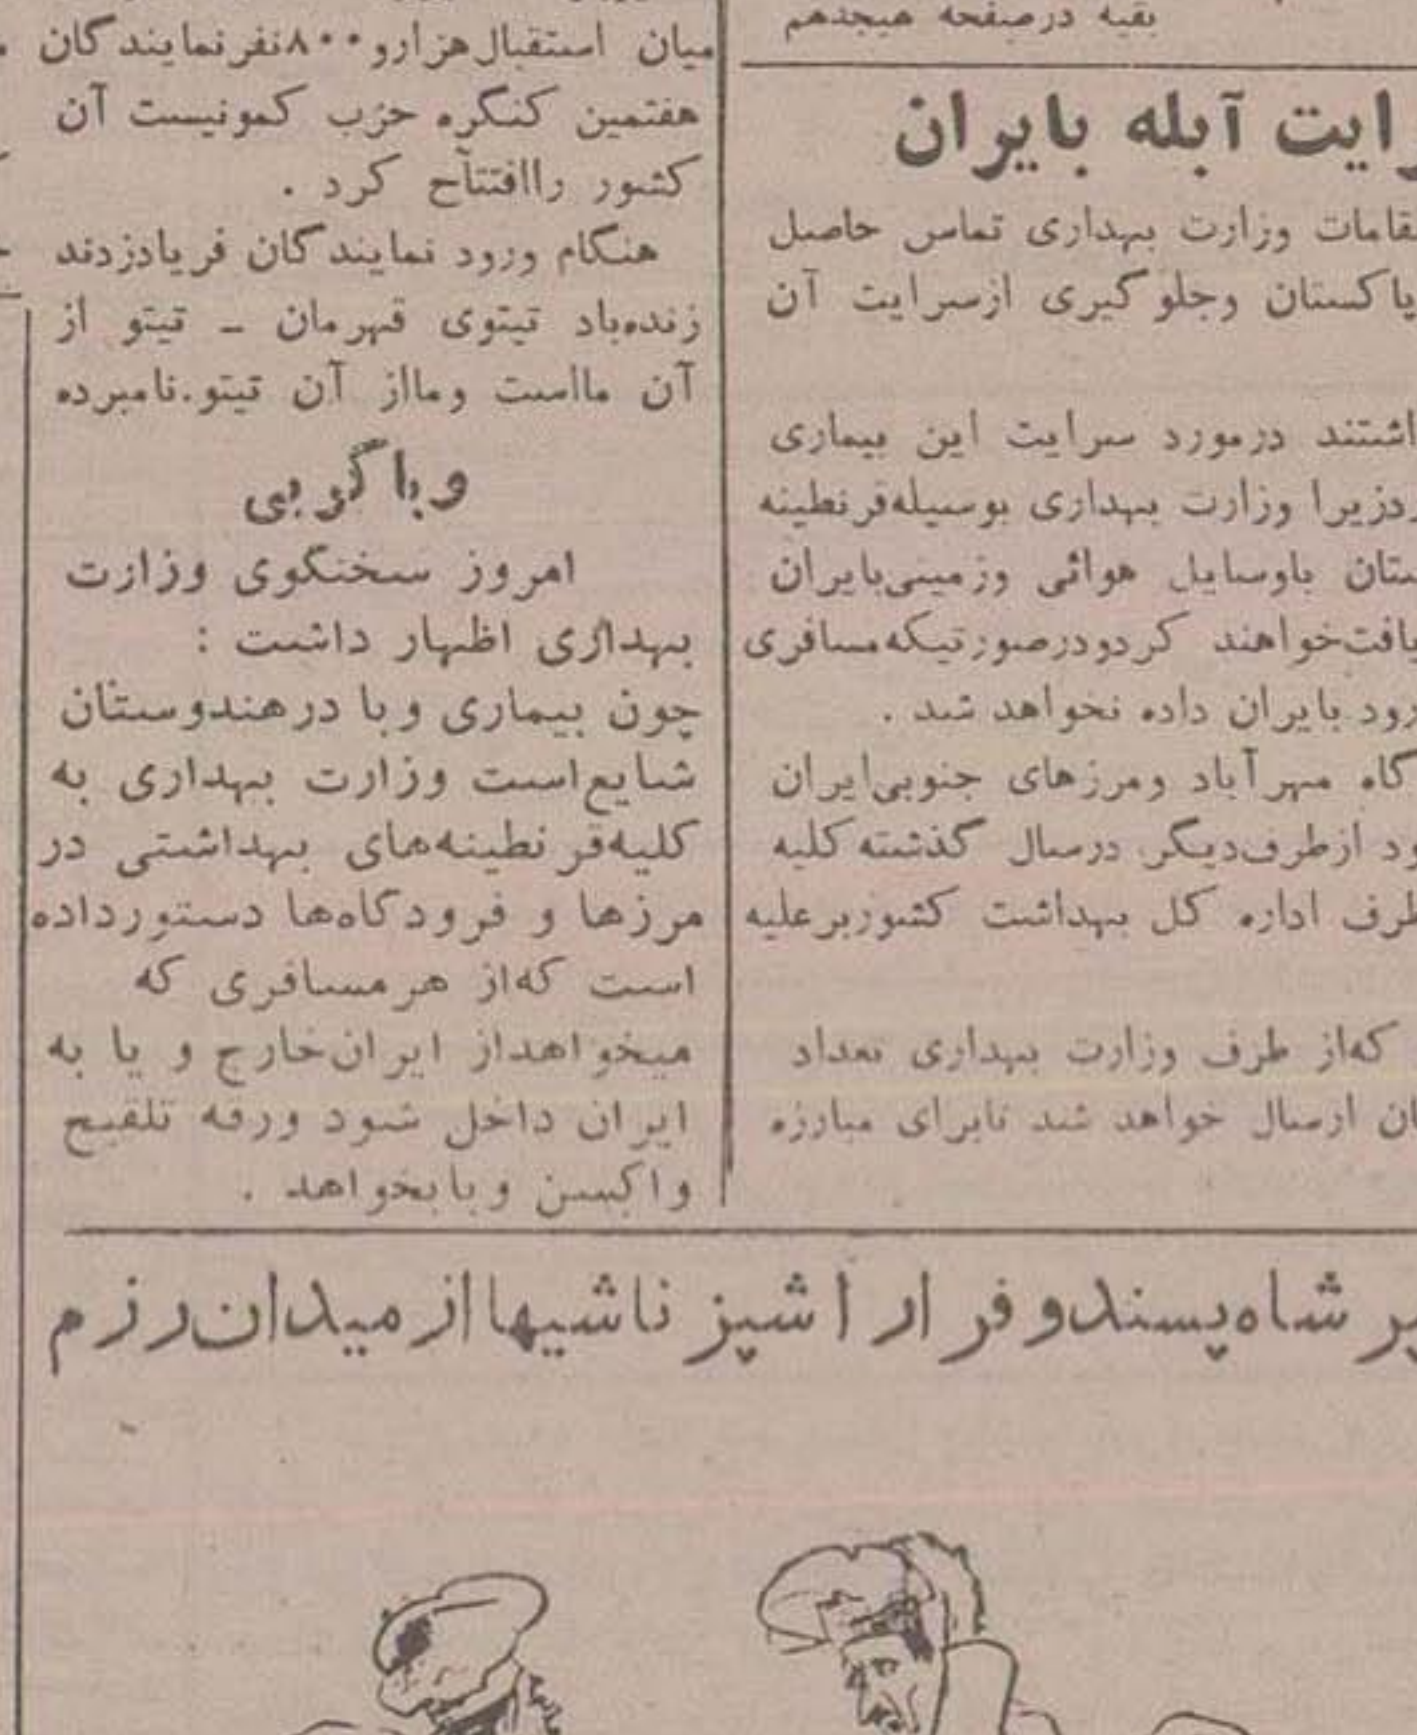 بقیه درصفحه هیجدهم
رایت آبله بایران
قامات وزارت بهداری تماس حاصل
پاکستان وجلوگیری ازسرایت آن
اشتند درمورد سرایت این بیماری
ردزیرا وزارت بهداری بوسیلهقرنطینه
ستان باوسایل هوائی وزمینیبایران
یافتخواهند کردودرصورتیکهمسافری
رود بایران داده نخواهد شد .
گاه مهرآباد ومرزهای جنوبیایران
ود ازطرفدیگر درسال گذشتهکلیه
طرف اداره کل بهداشت کشوربرعلیه
کهاز طرف وزارت بهداری تعداد
ان ارسال خواهد شد تابرای مبارزه
میان استقبالهزارو۸۰۰نفرنمایندگان
هفتمین کنگره حزب کمونیست آن
کشور راافتتاح کرد .
هنگام ورود نمایندگان فریادزدند
زندهباد تیتوی قهرمان ـ تیتو از
آن مااست ومااز آن تیتو.نامبرده
وباکوبی
امروز سخنگوی وزارت
بهداری اظهار داشت :
چون بیماری وبا درهندوستان
شایعاست وزارت بهداری به
کلیهقرنطینههای بهداشتی در
مرزها و فرودگاهها دستورداده
است کهاز هرمسافری که
میخواهداز ایرانخارج و یا به
ایران داخل شود ورقه تلقیح
واکسن وبابخواهد .
شاهپسندوفرار آشپز ناشیهااز میدانرزم